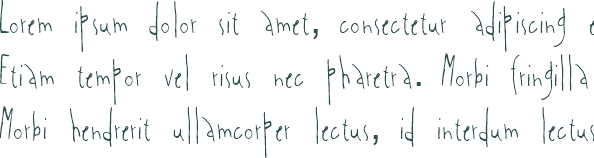 Lorem ipsum dolor sit amet, consectetur adipiscing e
Etiam tempor vel risus nec pharetra. Morbi fringilla
Morbi hendrerit ullamcorper lectus, id interdum lectus